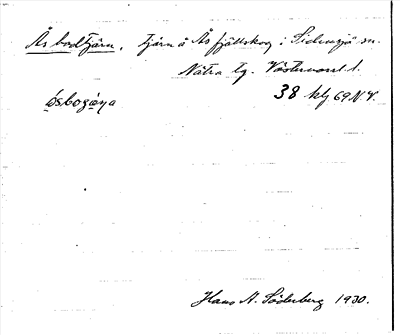 Ås bodtjärn, tjärn å Ås fjällskog i Sidensjö sn.
Nätra tg. Västernorrl. l.
ósbogáṇa 38 kbl 69 N.V.
Hans N. Söderberg 1930.